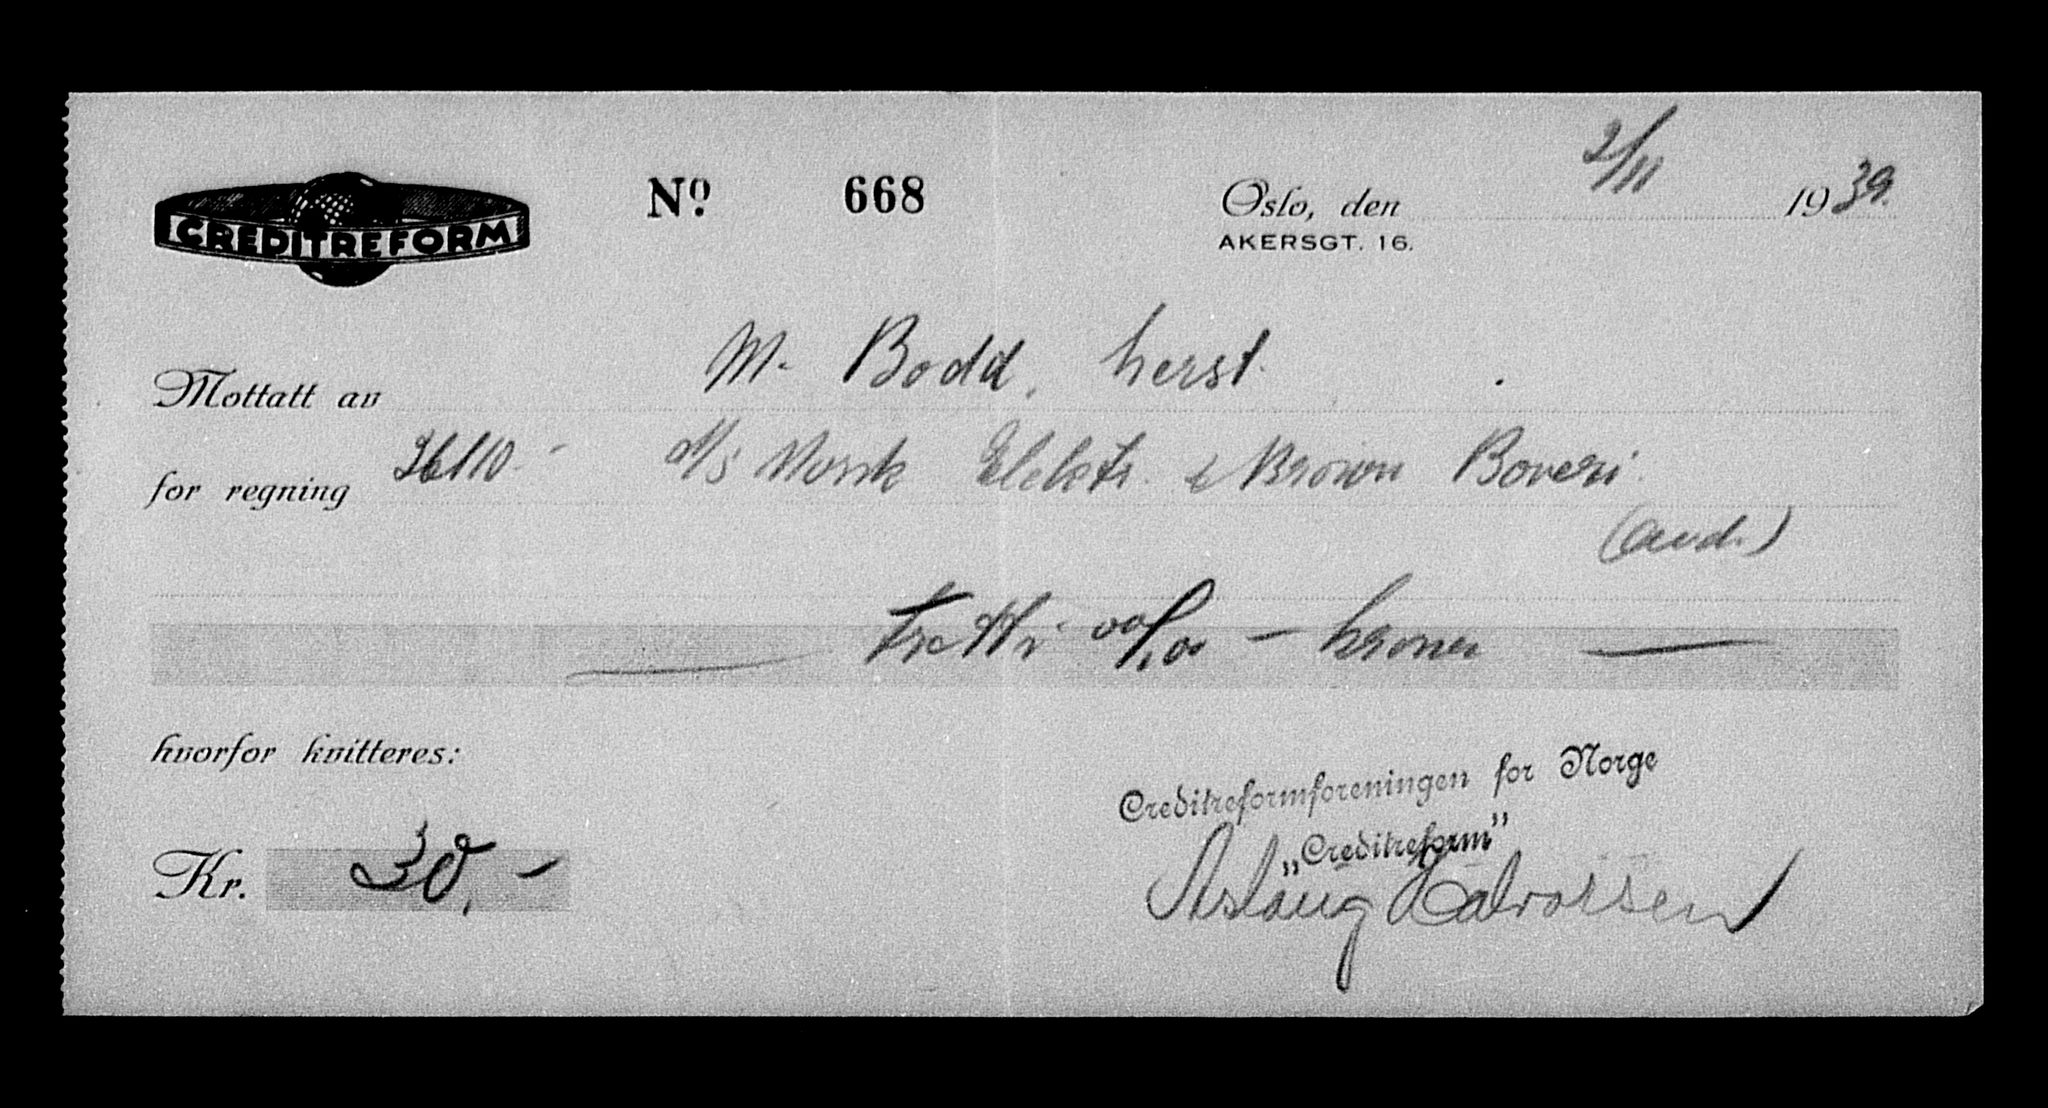 CREDITREFORM
No 668
Oslo, den 2/11 1939.
AKERSGT. 16.
Mottatt av M. Bodd, herst.
for regning 26/10.- A/S Norsk Elektr. & Brown Boveri.
(avd.)
Tretti 00/100 - kroner
hvorfor kvitteres:
Creditreformforeningen for Norge
„Creditreform”
Kr. 30,-
Aslaug Halvorsen